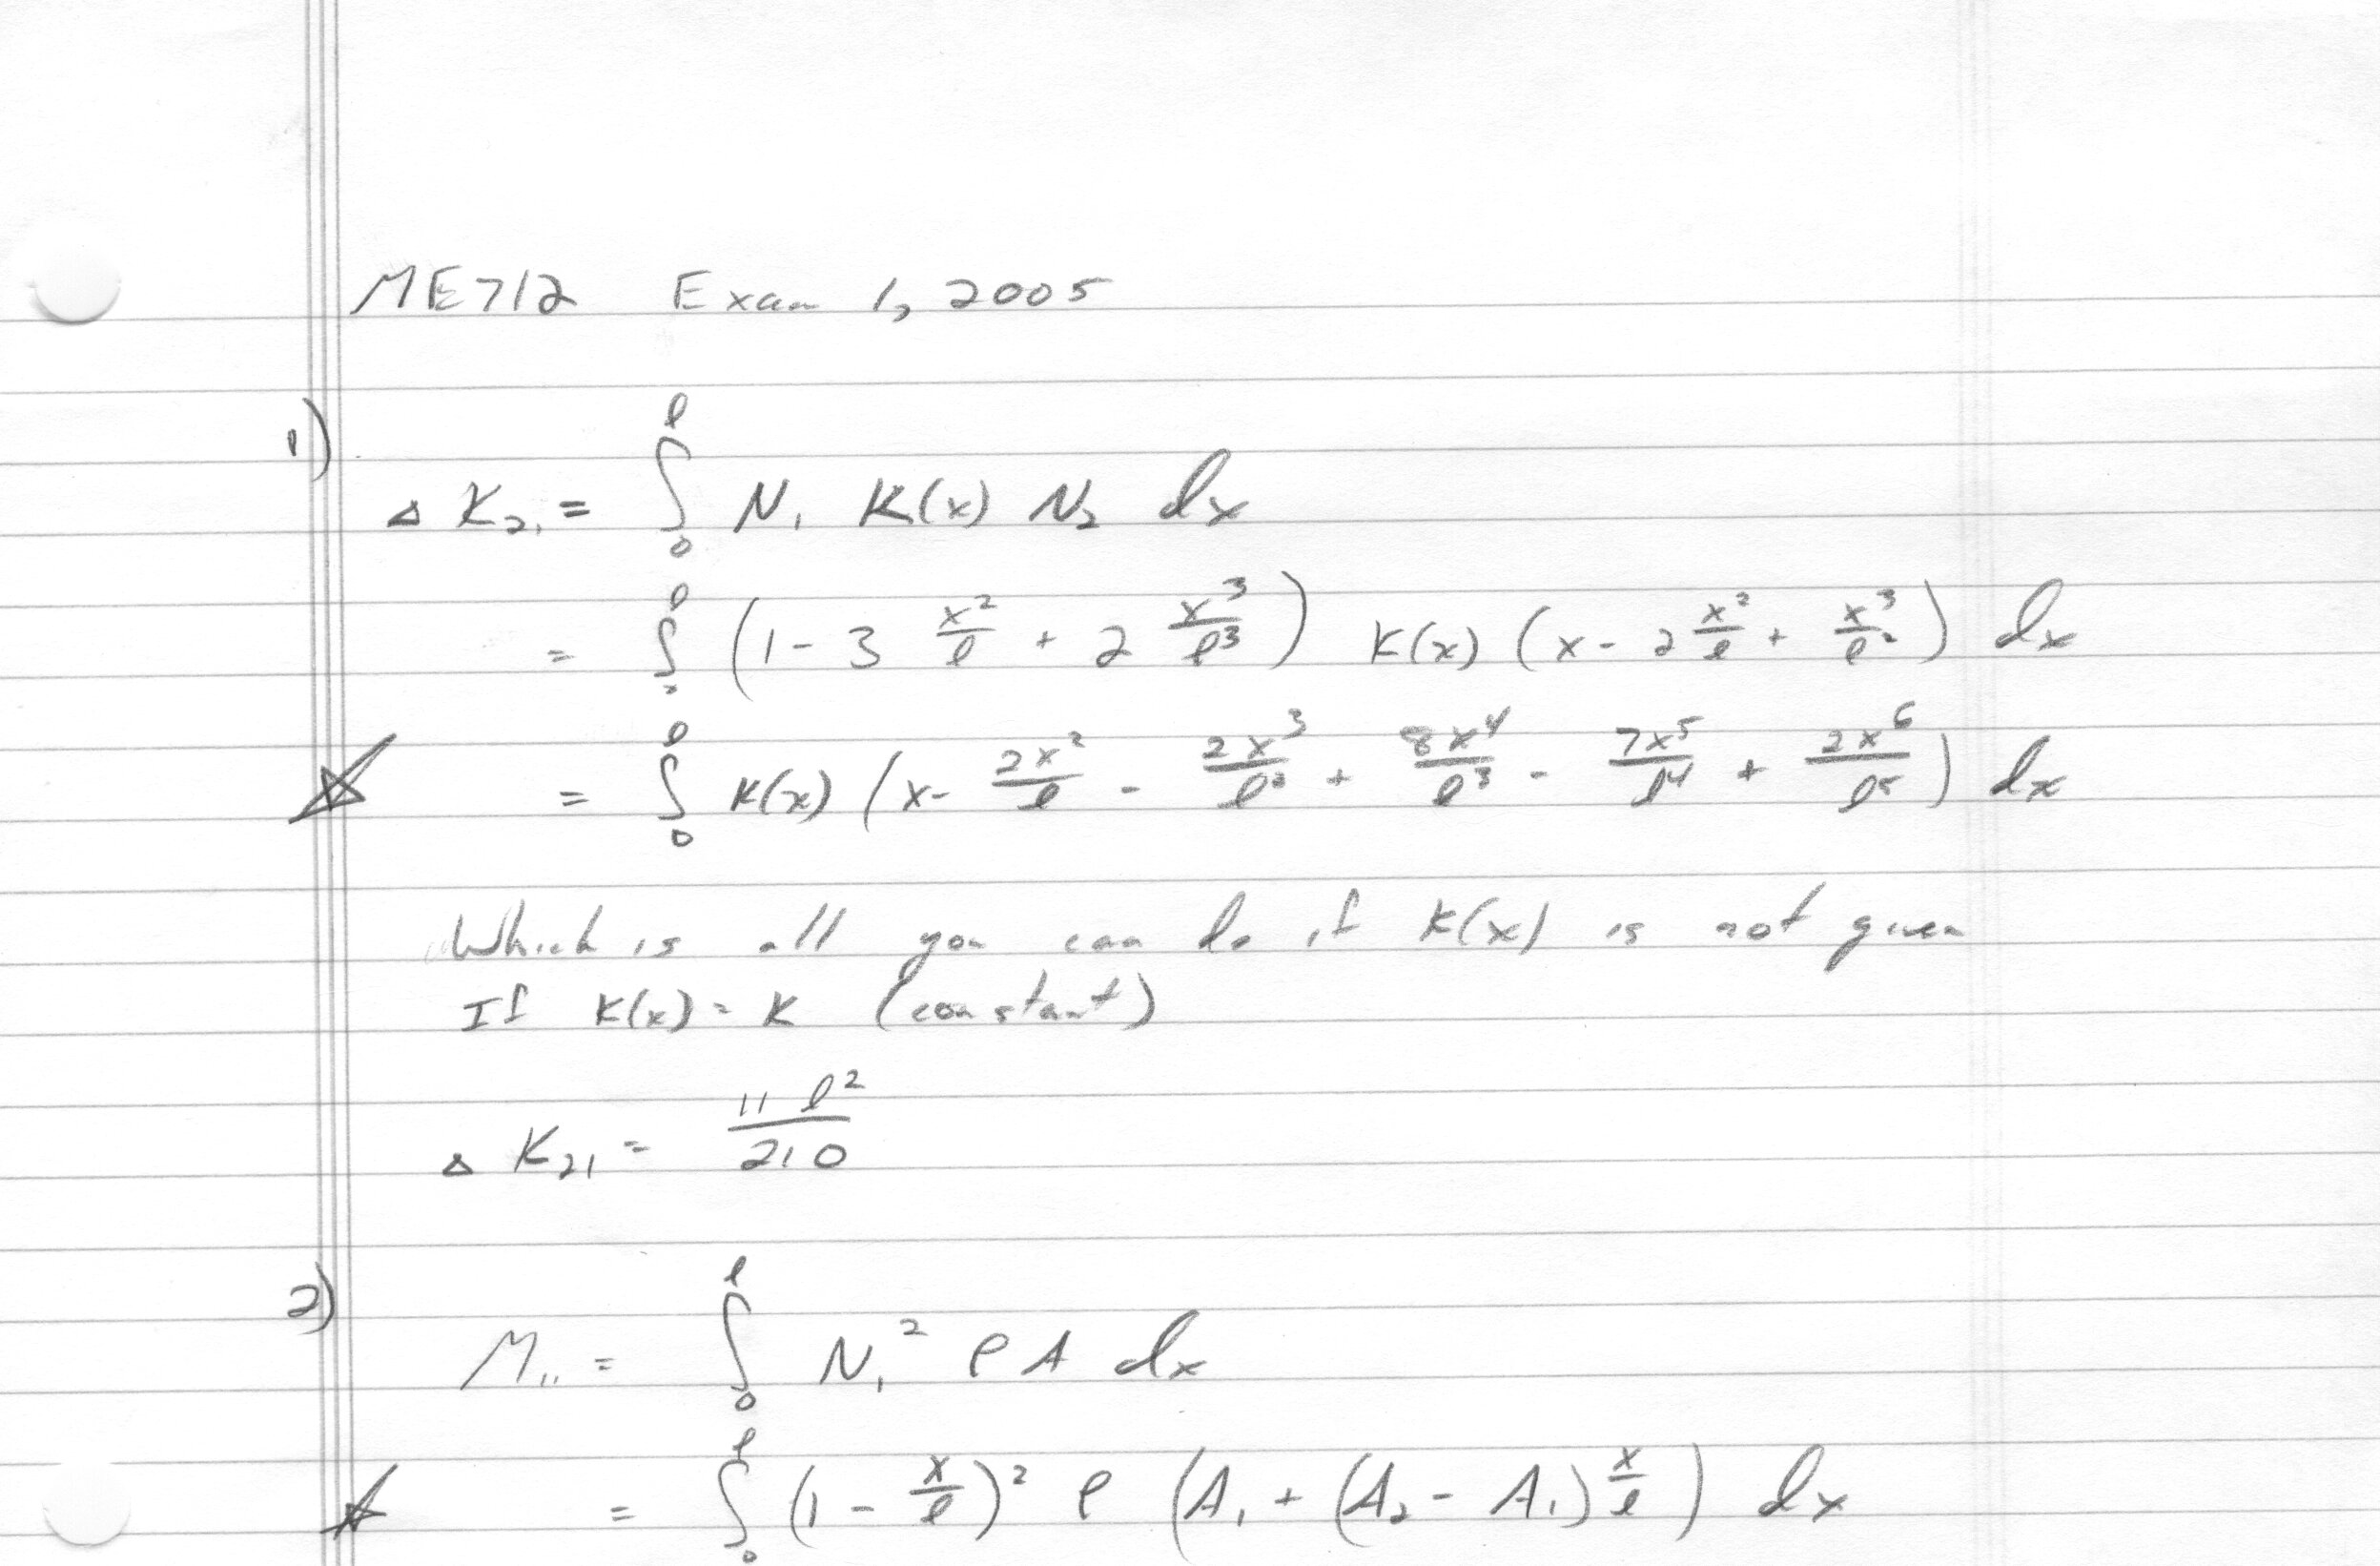 ME712 Exam 1, 2005
1)
Δ K₂₁ = ∫₀^ℓ N₁ K(x) N₂ dx
= ∫₀^ℓ (1 - 3 x²/ℓ + 2 x³/ℓ³) K(x) (x - 2 x²/ℓ + x³/ℓ²) dx
= ∫₀^ℓ K(x) (x - 2x²/ℓ - 2x³/ℓ² + 8x⁴/ℓ³ - 7x⁵/ℓ⁴ + 2x⁶/ℓ⁵) dx
Which is all you can do if K(x) is not given
If K(x) = K (constant)
Δ K₂₁ = 11 ℓ²/210
2)
M₁₁ = ∫₀^ℓ N₁² ρ A dx
= ∫₀^ℓ (1 - x/ℓ)² ρ (A₁ + (A₂ - A₁) x/ℓ) dx